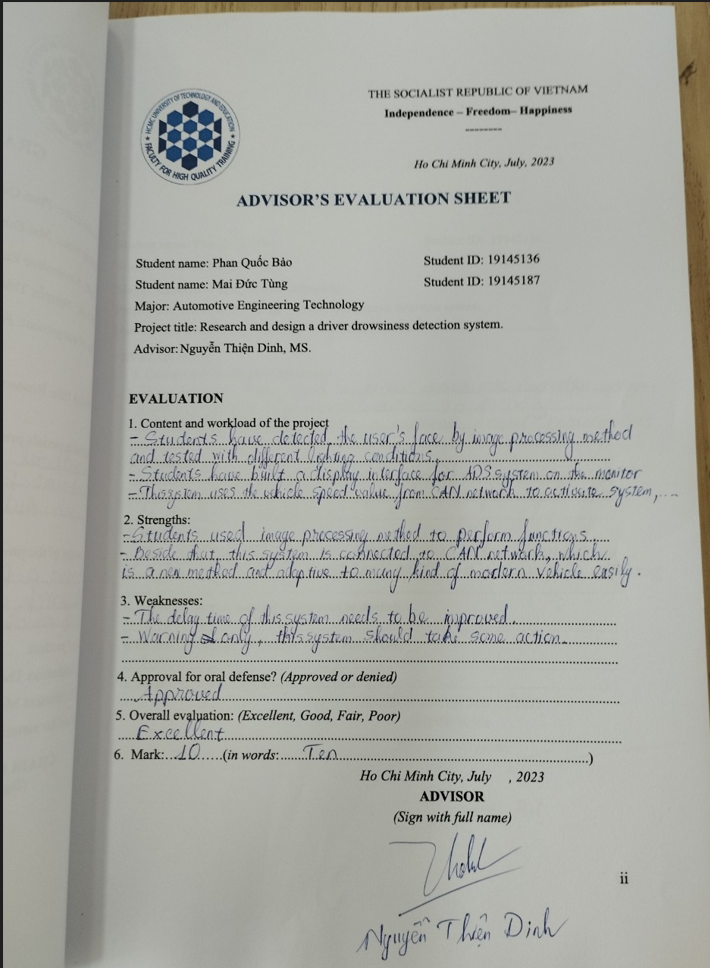 HCMC UNIVERSITY OF TECHNOLOGY AND EDUCATION
FACULTY FOR HIGH QUALITY TRAINING
THE SOCIALIST REPUBLIC OF VIETNAM
Independence – Freedom– Happiness
--------
Ho Chi Minh City, July, 2023
ADVISOR'S EVALUATION SHEET
Student name: Phan Quốc Bảo Student ID: 19145136
Student name: Mai Đức Tùng Student ID: 19145187
Major: Automotive Engineering Technology
Project title: Research and design a driver drowsiness detection system.
Advisor: Nguyễn Thiện Dinh, MS.
EVALUATION
1. Content and workload of the project
- Students have detected the user's face by image processing method
and tested with different lighting conditions.
- Students have built a display interface for ADS system on the monitor
- This system uses the vehicle speed value from CAN network to activate system,...
2. Strengths:
- Students used image processing method to perform functions.
- Beside that, this system is connected to CAN network, which
is a new method and adaptive to many kind of modern vehicle easily.
3. Weaknesses:
- The delay time of this system needs to be improved.
- Warning only, this system should take some action.
4. Approval for oral defense? (Approved or denied)
Approved
5. Overall evaluation: (Excellent, Good, Fair, Poor)
Excellent
6. Mark: 10 (in words: Ten )
Ho Chi Minh City, July , 2023
ADVISOR
(Sign with full name)
Nguyễn Thiện Dinh
ii